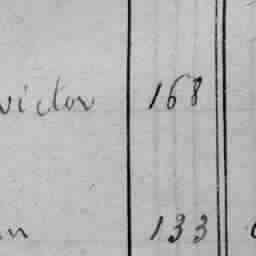 victor 168
133